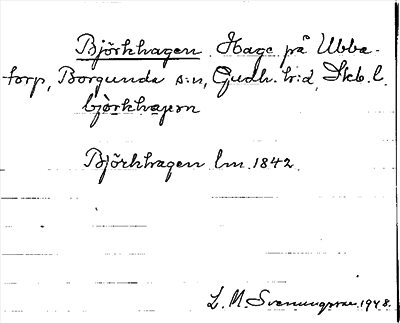 Björkhagen. Hage på Ubba-
torp, Borgunda s:n, Gudh. h:d, Skb. l.
björkhagen
Björkhagen lm. 1842.
L. M. Svenungsson 1948.